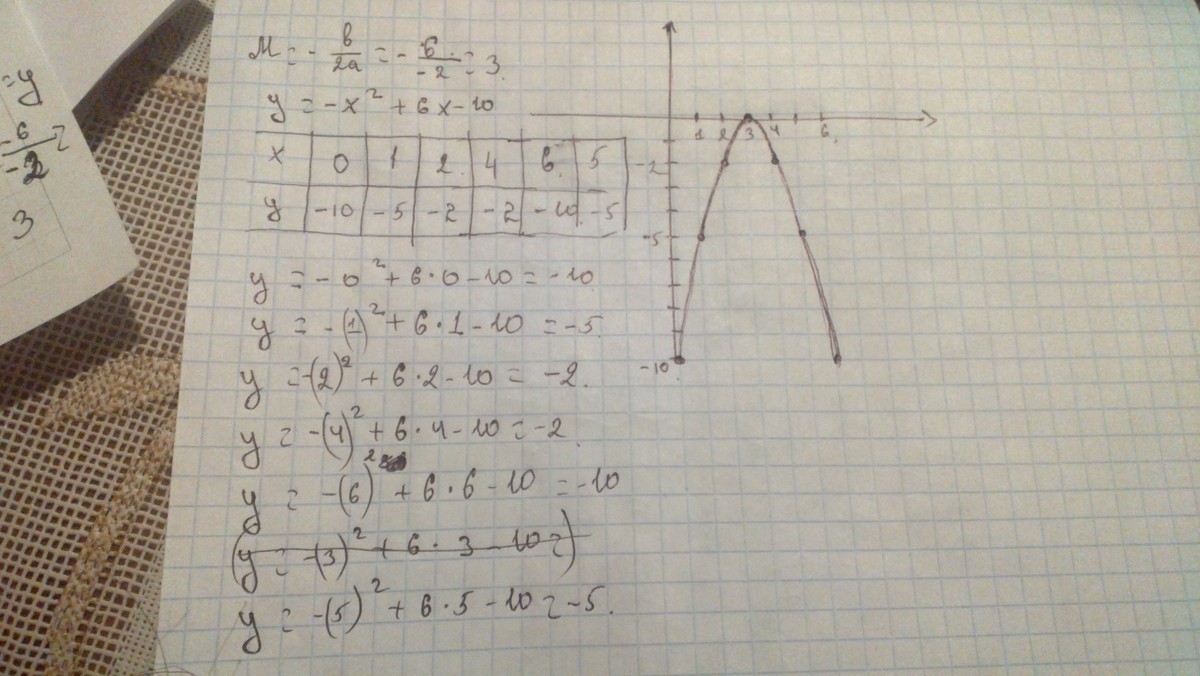 =y
-6/-2 =
3
M = - b/2a = - 6/-2 = 3.
y = -x² + 6x - 10
x 0 1 2. 4 6. 5
y -10 -5 -2 -2 -10. -5
y = -0² + 6·0 - 10 = -10.
y = -(1)² + 6·1 - 10 = -5.
y = -(2)² + 6·2 - 10 = -2.
y = -(4)² + 6·4 - 10 = -2.
y = -(6)² + 6·6 - 10 = -10
(y = -(3)² + 6·3 - 10 =)
y = -(5)² + 6·5 - 10 = -5.
1 2 3 4 6.
-2
-5
-10